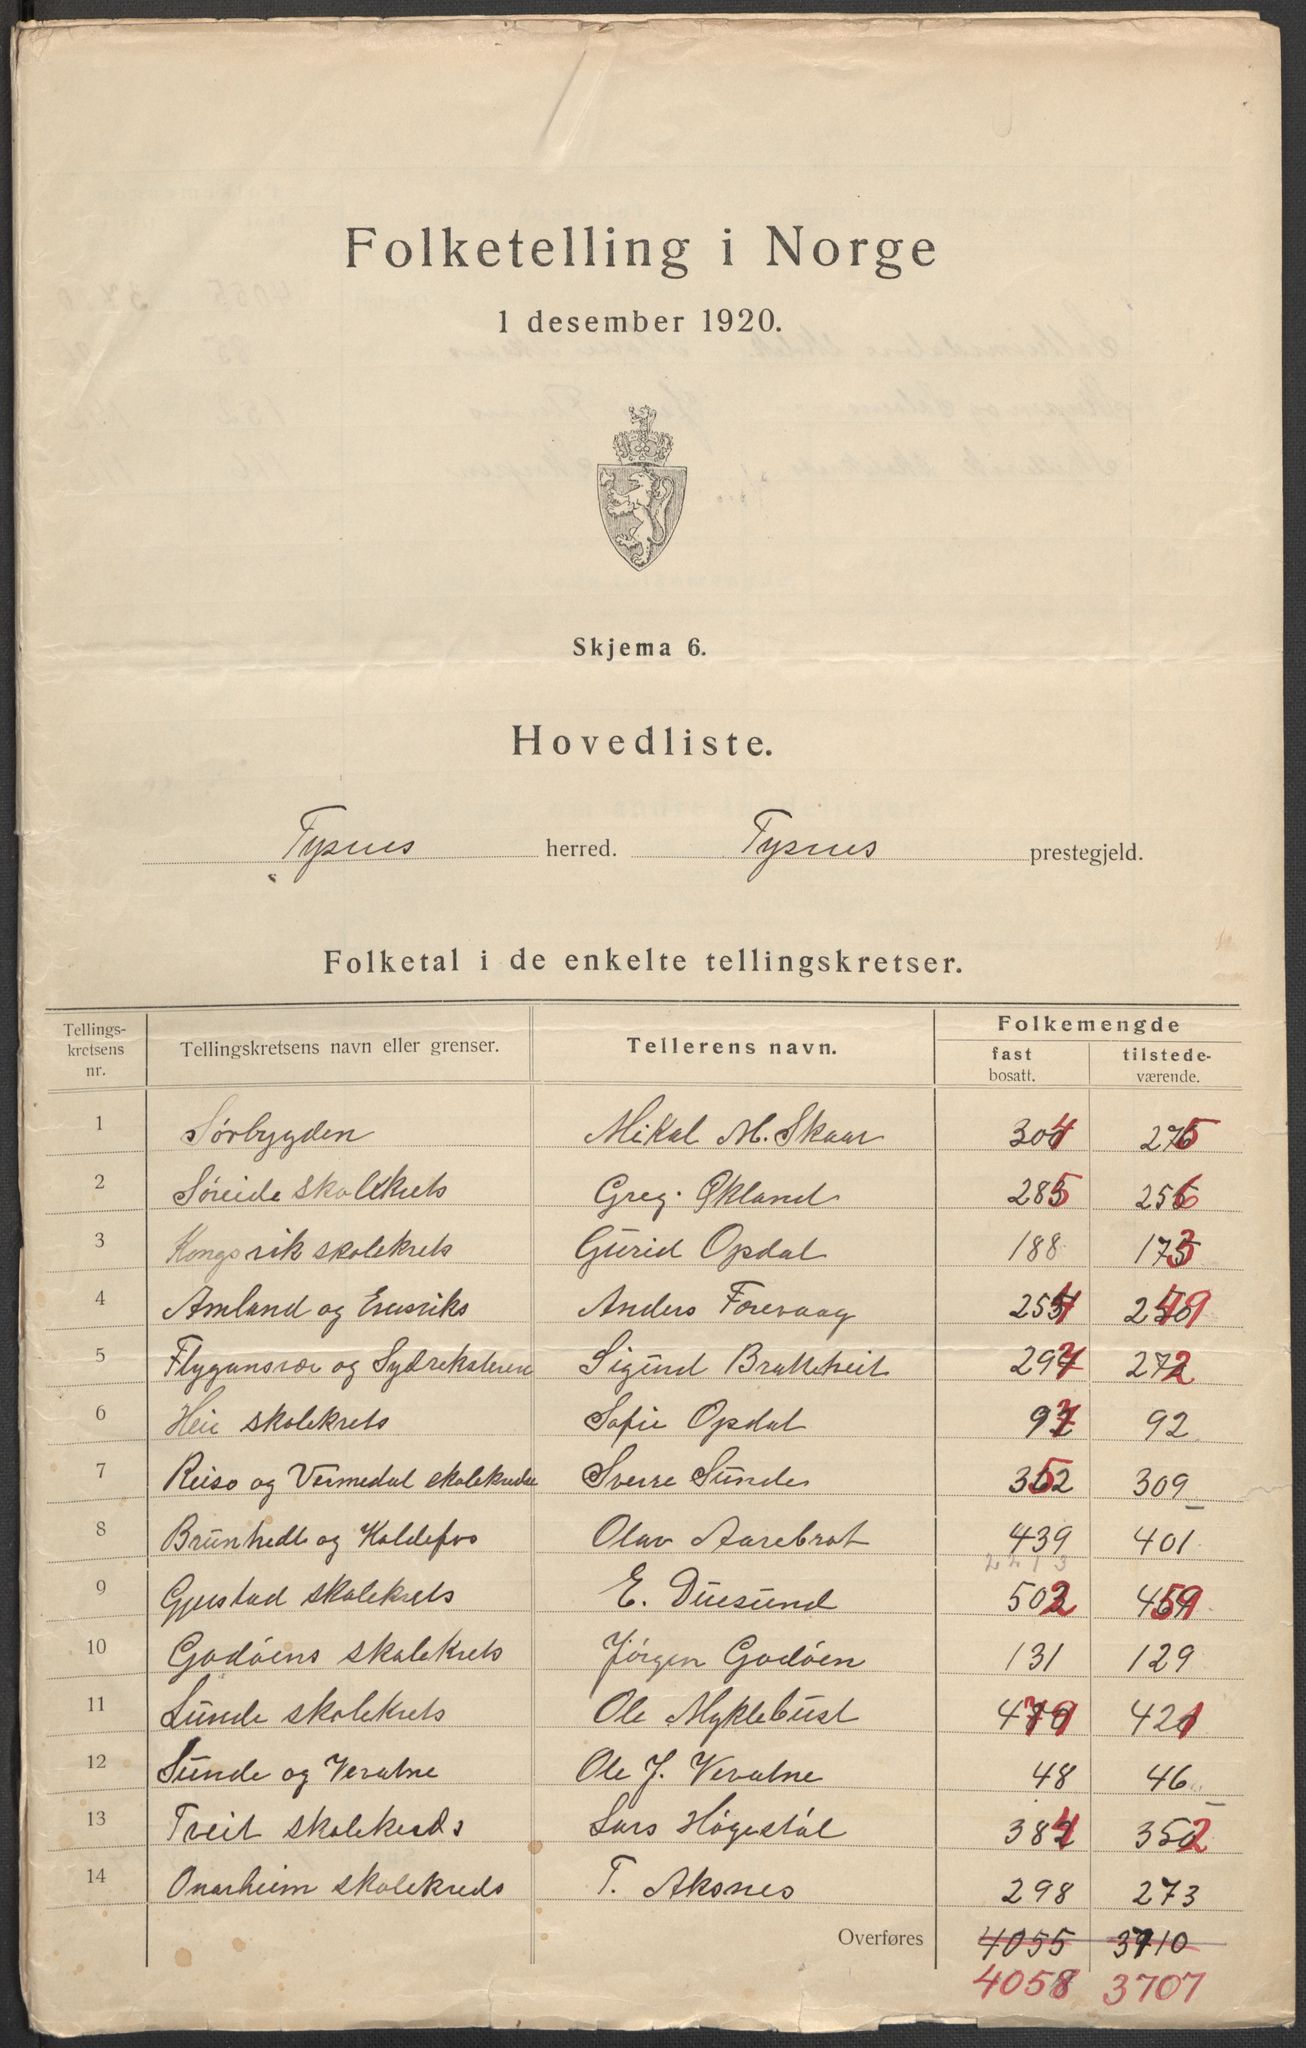 Folketelling i Norge
1 desember 1920.
Skjema 6.
Hovedliste.
Tysnes herred. Tysnes prestegjeld.
Folketal i de enkelte tellingskretser.
Tellings-kretsens nr. Tellingskretsens navn eller grenser. Tellerens navn. Folkemengde
fast bosatt. tilstede-værende.
1 Sørbygden Mikal M. Skaar 304 275
2 Søreide skolekrets Greg. Økland 285 256
3 Kongsvik skolekrets Gurid Opdal 188 173
4 Amland og Enesviks Anders Forevaag 254 249
5 Flygansvær og Sydreksteren Sigurd Brattetveit 297 272
6 Heie skolekrets Sofie Opdal 97 92
7 Reiso og Vermedal skolekredse Sverre Sunde 352 309
8 Brunhedt og Koldefos Olav Aarebrot 439 401
2213
9 Gjerstad skolekrets E. Duesund 502 459
10 Godøens skolekrets Jørgen Godøen 131 129
11 Lunde skolekrets Ole Myklebust 479 421
12 Sunde og Veratne Ole J. Veratne 48 46
13 Tveit skolekreds Lars Høgestøl 384 352
14 Onarheim skolekreds T. Aksnes 298 273
Overføres 4055 3710
4058 3707